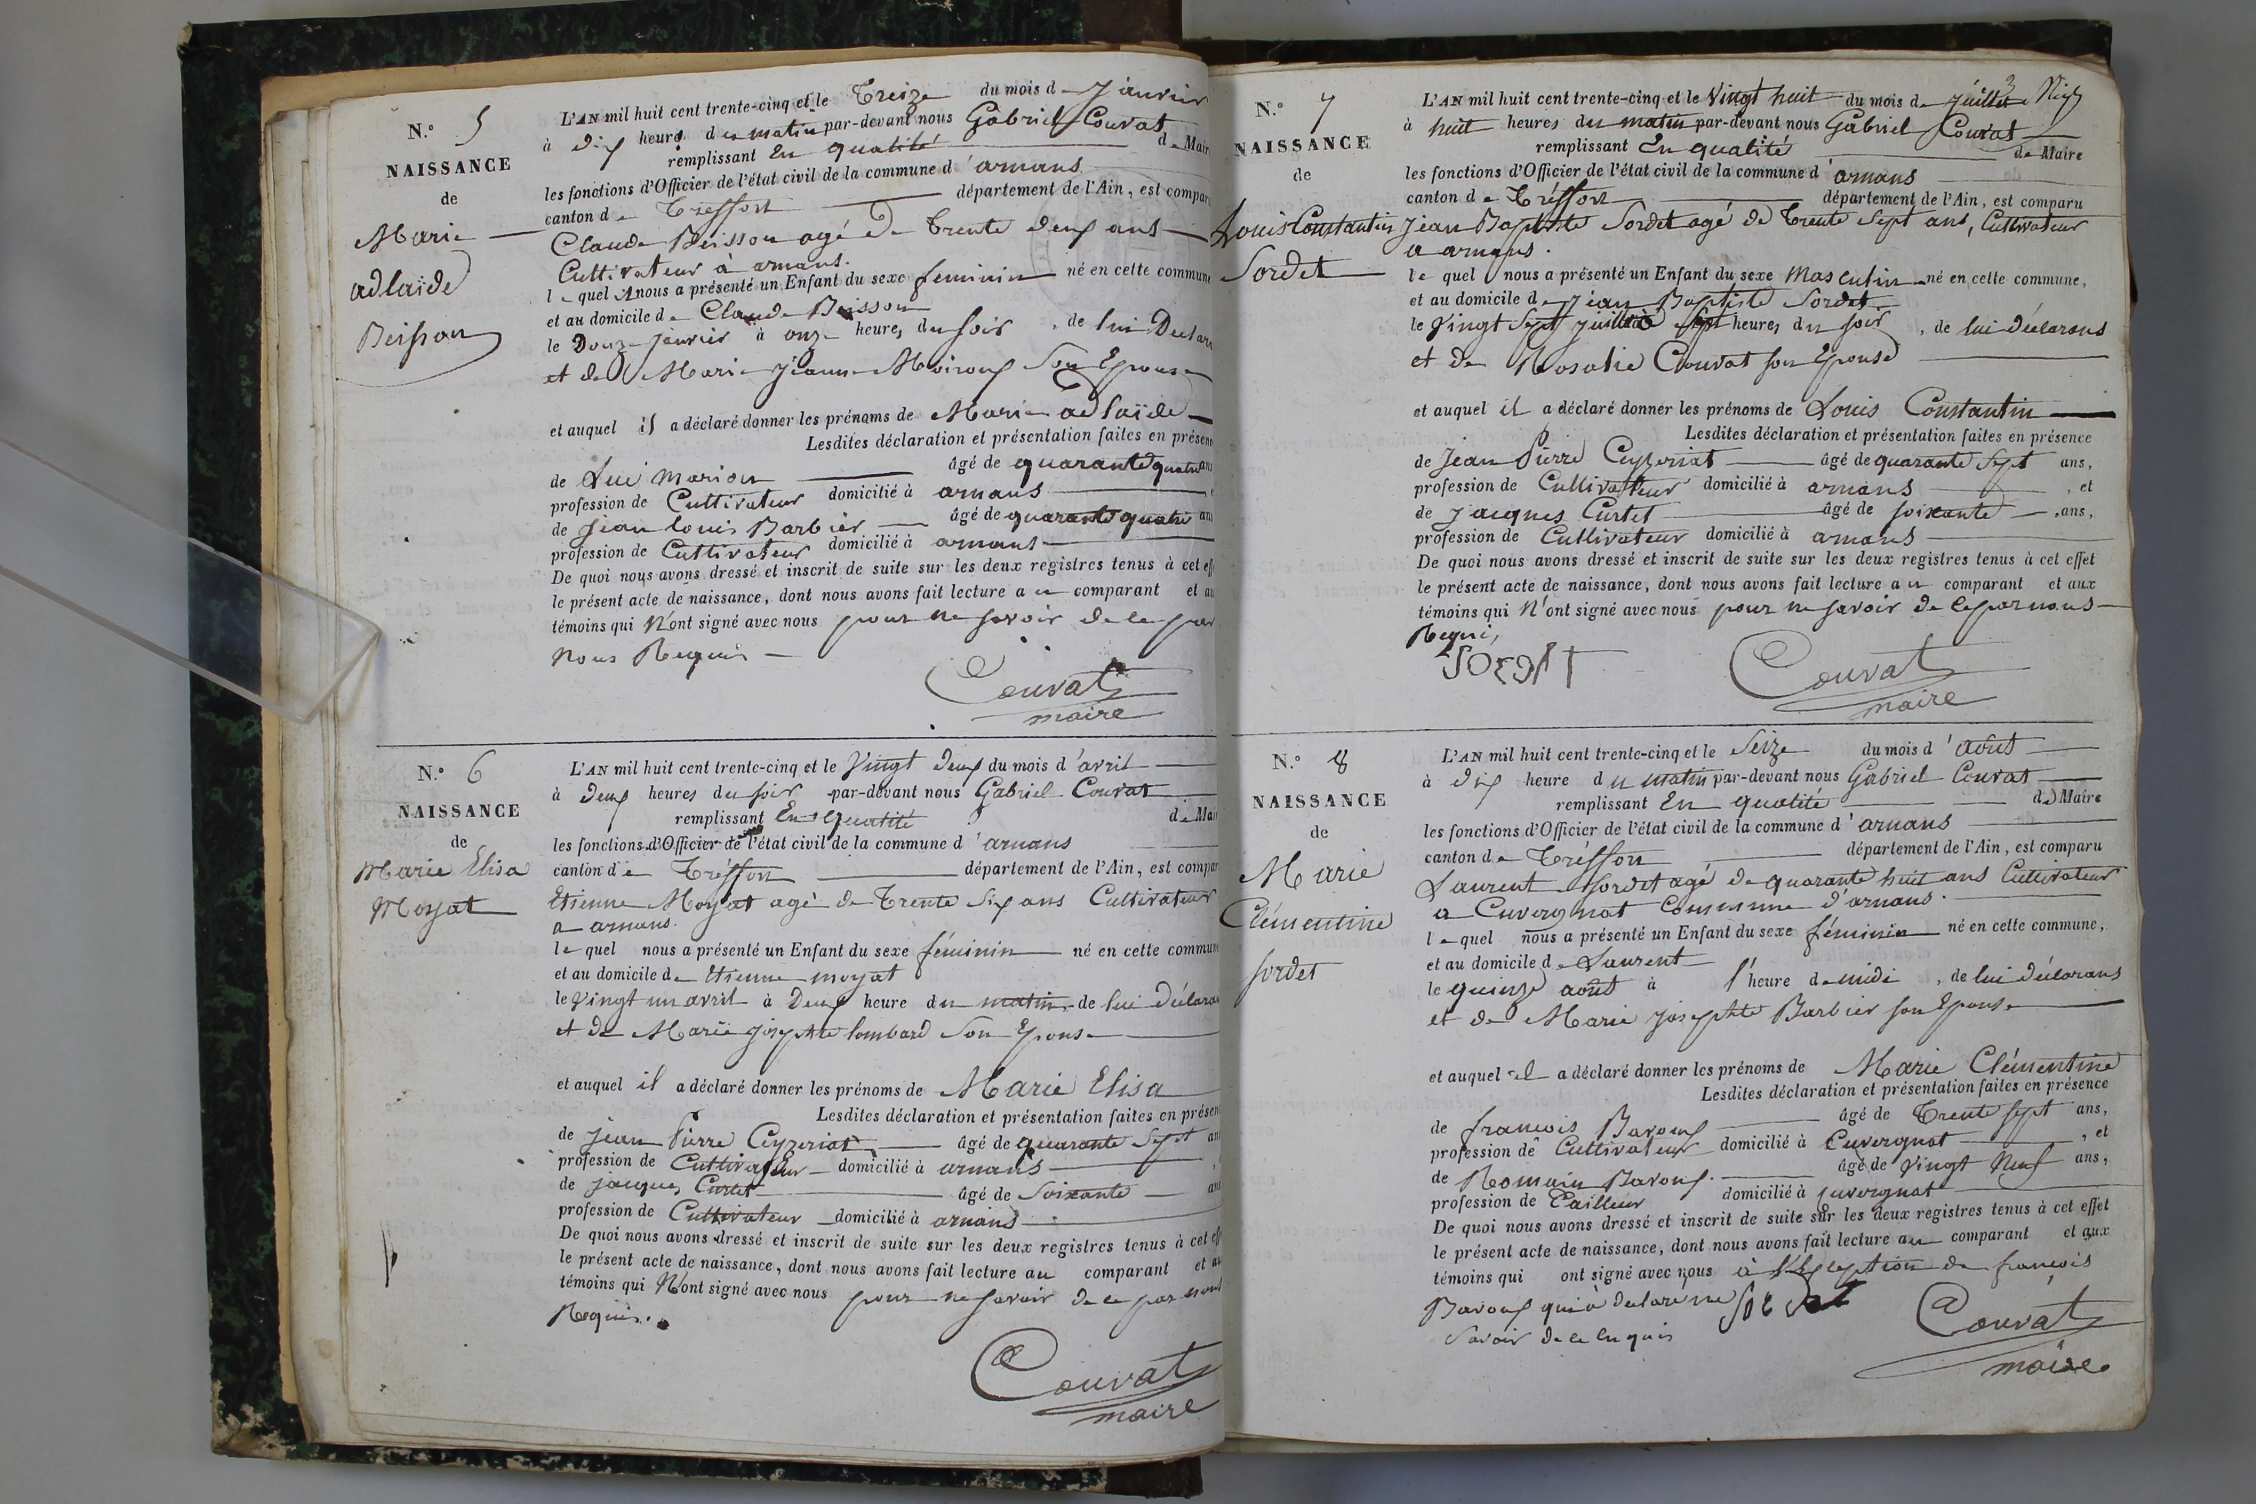 N.° 5
NAISSANCE
de
Marie
adlaide
Beisson
L'AN mil huit cent trente-cinq et le Treize du mois de Janvier
à dix heures du matin par-devant nous Gabriel Couvat
remplissant En qualité de Mair
les fonctions d'Officier de l'état civil de la commune d'arnans
canton de Treffort département de l'Ain, est compar
Claude Beisson agé de Trente deux ans
Cultivateur à arnans.
lequel nous a présenté un Enfant du sexe feminin né en cette commune
et au domicile de Claude Beisson
le Douze Janvier à onze heures du soir, de lui Declar
et de Marie Jeanne Moiroux Son Epouse
et auquel il a déclaré donner les prénoms de Marie adlaïde
Lesdites déclaration et présentation faites en présen
de Luc Marion âgé de quarante quatre ans
profession de Cultivateur domicilié à arnans
de Jean louis Barbier âgé de quarante quatre an
profession de Cultivateur domicilié à arnans
De quoi nous avons dressé et inscrit de suite sur les deux registres tenus à cet eff
le présent acte de naissance, dont nous avons fait lecture au comparant et au
témoins qui N'ont signé avec nous pour ne savoir de ce par
nous Requis
Couvat
maire
N.° 6
NAISSANCE
de
Marie Elisa
Moyat
L'AN mil huit cent trente-cinq et le Vingt deux du mois d'avril
à deux heures du soir par-devant nous Gabriel Couvat
remplissant En qualité de Mai
les fonctions d'Officier de l'état civil de la commune d'arnans
canton de Tréffort département de l'Ain, est compar
Etienne Moyat agé de Trente Six ans Cultivateur
a arnans.
lequel nous a présenté un Enfant du sexe féminin né en cette commun
et au domicile de Etienne moyat
le Vingt un avril à Deux heure du matin, de lui Déclara
et de Marie josephte lombard Son Epouse
et auquel il a déclaré donner les prénoms de Marie Elisa
Lesdites déclaration et présentation faites en présen
de jean Pierre Ceyzeriat âgé de quarante Sept an
profession de Cultivateur domicilié à arnans
de jacques Curtet âgé de Soixante an
profession de Cultivateur domicilié à arnans
De quoi nous avons dressé et inscrit de suite sur les deux registres tenus à cet eff
le présent acte de naissance, dont nous avons fait lecture au comparant et au
témoins qui N'ont signé avec nous pour ne savoir de ce par nous
Requis.
Couvat
maire
N.° 7
NAISSANCE
de
Louis Constantin
Sordet
L'AN mil huit cent trente-cinq et le Vingt huit du mois de juillet
à huit heures du matin par-devant nous Gabriel Couvat
remplissant En qualité de Maire
les fonctions d'Officier de l'état civil de la commune d'arnans
canton de Tréffort département de l'Ain, est comparu
Jean Baptiste Sordet agé de Trente Sept ans, Cultivateur
a arnans.
lequel nous a présenté un Enfant du sexe Masculin né en cette commune,
et au domicile de Jean Baptiste Sordet
le Vingt Sept Juillet à sept heures du soir, de lui déclarans
et de Rosalie Couvat son Epouse
et auquel il a déclaré donner les prénoms de Louis Constantin
Lesdites déclaration et présentation faites en présence
de Jean Pierre Ceyzeriat âgé de quarante Sept ans,
profession de Cultivateur domicilié à arnans, et
de jacques Curtet âgé de soixante ans,
profession de Cultivateur domicilié à arnans
De quoi nous avons dressé et inscrit de suite sur les deux registres tenus à cet effet
le présent acte de naissance, dont nous avons fait lecture au comparant et aux
témoins qui N'ont signé avec nous pour ne savoir de ce par nous
Requis
Couvat
maire
N.° 8
NAISSANCE
de
Marie
Clémentine
sordet
L'AN mil huit cent trente-cinq et le Seize du mois d'août
à dix heure du matin par-devant nous Gabriel Couvat
remplissant En qualité de Maire
les fonctions d'Officier de l'état civil de la commune d'arnans
canton de Tréffort département de l'Ain, est comparu
Laurent Sordet agé de quarante huit ans Cultivateur
a Cuvergnat Commune d'arnans.
lequel nous a présenté un Enfant du sexe féminin né en cette commune,
et au domicile de Laurent
le quinze août à l'heure de midi, de lui déclarans
et de Marie josephte Barbier son Epouse
et auquel il a déclaré donner les prénoms de Marie Clémentine
Lesdites déclaration et présentation faites en présence
de françois Baroux âgé de Trente sept ans,
profession de Cultivateur domicilié à Cuvergnat, et
de Romain Baroux âgé de Vingt Neuf ans,
profession de Tailleur domicilié à juvergnat
De quoi nous avons dressé et inscrit de suite sur les deux registres tenus à cet effet
le présent acte de naissance, dont nous avons fait lecture au comparant et aux
témoins qui ont signé avec nous à l'Exception de françois
Baroux qui à declaré ne
savoir de ce enquis
Couvat
maire